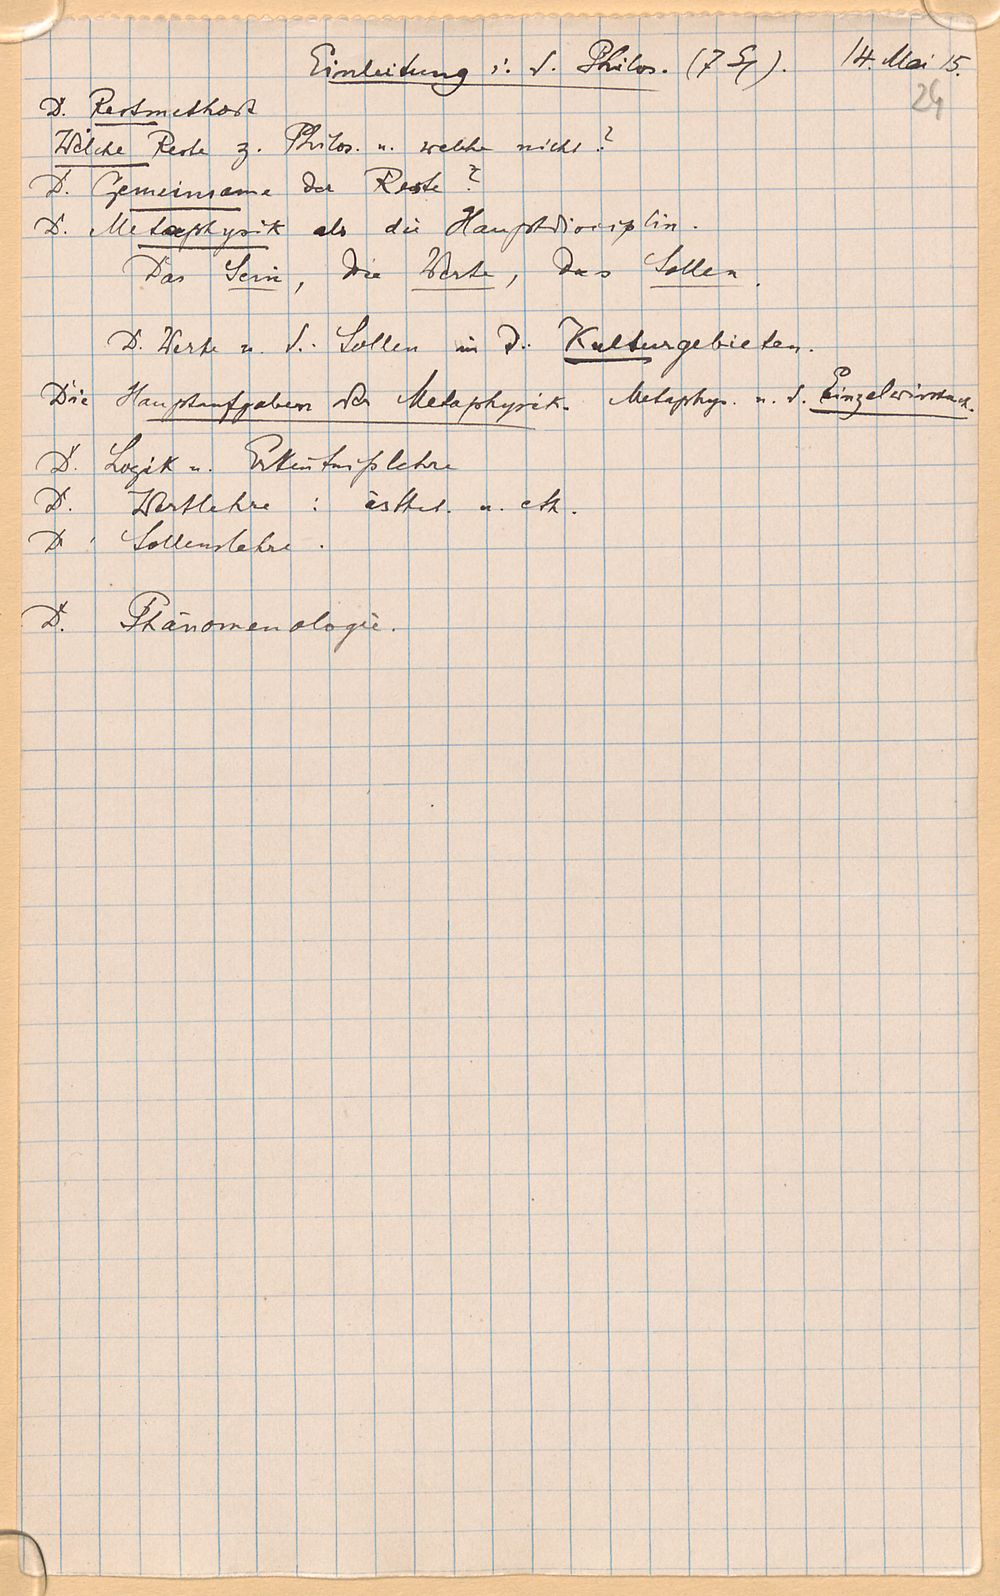 Einleitung i. d. Philos. (7 ). 14. Mai 15.
24
D. Restmethode
Welche Reste z. Philos. u. welche nicht?
D. Gemeinsame der Reste?
D. Metaphysik als die Hauptdisciplin.
Das Sein, die Werte, das Sollen.
D. Werte u. d. Sollen in d. Kulturgebieten.
Die Hauptaufgaben der Metaphysik. Metaphys. u. d. Einzelwissensch.
D. Logik u. Erkentnißlehre
D. Wertlehre : ästhet. u. eth.
D. Sollenslehre.
D. Phänomenologie.